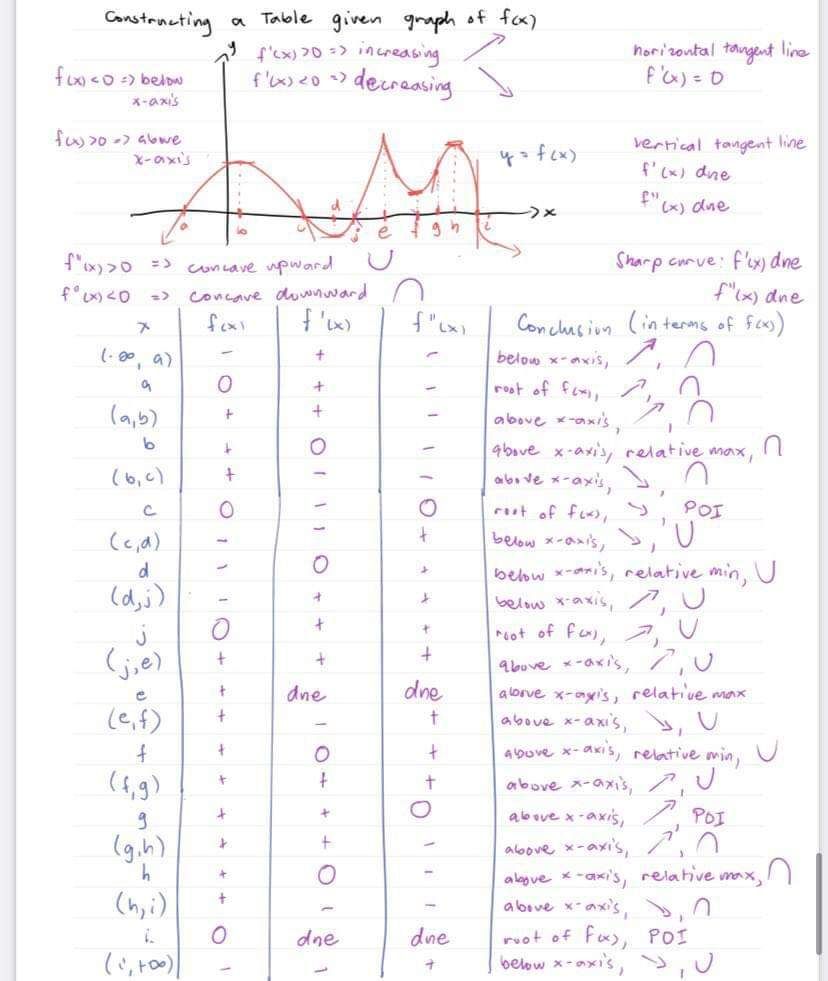 Constructing a Table given graph of f(x)
y f'(x) > 0 => increasing horizontal tangent line
f(x) < 0 => below f'(x) < 0 => decreasing f'(x) = 0
x-axis
f(x) > 0 => above vertical tangent line
x-axis y = f(x) f'(x) dne
f"(x) dne
a b c d j e f g h i x
f"(x) > 0 => concave upward ∪ Sharp curve: f'(x) dne
f"(x) < 0 => concave downward ∩ f"(x) dne
x f(x) f'(x) f"(x) Conclusion (in terms of f(x))
(-∞, a) - + - below x-axis, ↗, ∩
a 0 + - root of f(x), ↗, ∩
(a,b) + + - above x-axis, ↗, ∩
b + 0 - above x-axis, relative max, ∩
(b,c) + - - above x-axis, ↘, ∩
c 0 - 0 root of f(x), ↘, POI
(c,d) - - + below x-axis, ↘, ∪
d - 0 + below x-axis, relative min, ∪
(d,j) - + + below x-axis, ↗, ∪
j 0 + + root of f(x), ↗, ∪
(j,e) + + + above x-axis, ↗, ∪
e + dne dne above x-axis, relative max
(e,f) + - + above x-axis, ↘, ∪
f + 0 + above x-axis, relative min, ∪
(f,g) + + + above x-axis, ↗, ∪
g + + 0 above x-axis, ↗, POI
(g,h) + + - above x-axis, ↗, ∩
h + 0 - above x-axis, relative max, ∩
(h,i) + - - above x-axis, ↘, ∩
i 0 dne dne root of f(x), POI
(i,+∞) - - + below x-axis, ↘, ∪